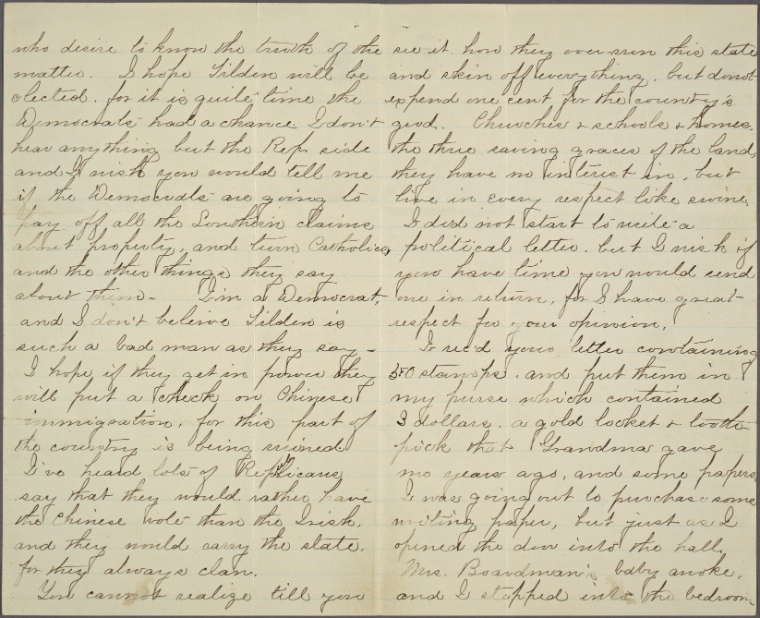 who desire to know the truth of the
matter. I hope Tilden will be
elected. for it is quite time the
Democrats had a chance I don't
hear anything but the Rep. side
and I wish you would tell me
if the Democrats are going to
pay off all the Southern claims
about property, and turn Catholics,
and the other things they say
about them - I'm a Democrat,
and I don't believe Tilden is
such a bad man as they say -
I hope if they get in power they
will put a check on Chinese
immigration, for this part of
the country is being ruined
I've heard lots of Replicans
say that they would rather have
the Chinese vote than the Irish.
and they would carry the state.
for they always clan.
You cannot realize till you
see it how they over-run this state
and skin off everything. but do not
expend one cent for the country's
good. Churches & schools & homes.
the three saving graces of the land,
they have no interest in, but
live in every respect like swine.
I did not start to write a
political letter. but I wish if
you have time you would send
one in return, for I have great
respect for your opinion.
I rec'd your letter containing
stamps. and put them in
my purse which contained
3 dollars. a gold locket & tooth
pick that Grandma gave
me years ago, and some papers
I was going out to purchase some
writing paper, but just as I
opened the door into the hall
Mrs. Boardman's baby awoke.
and I stepped into the bedroom